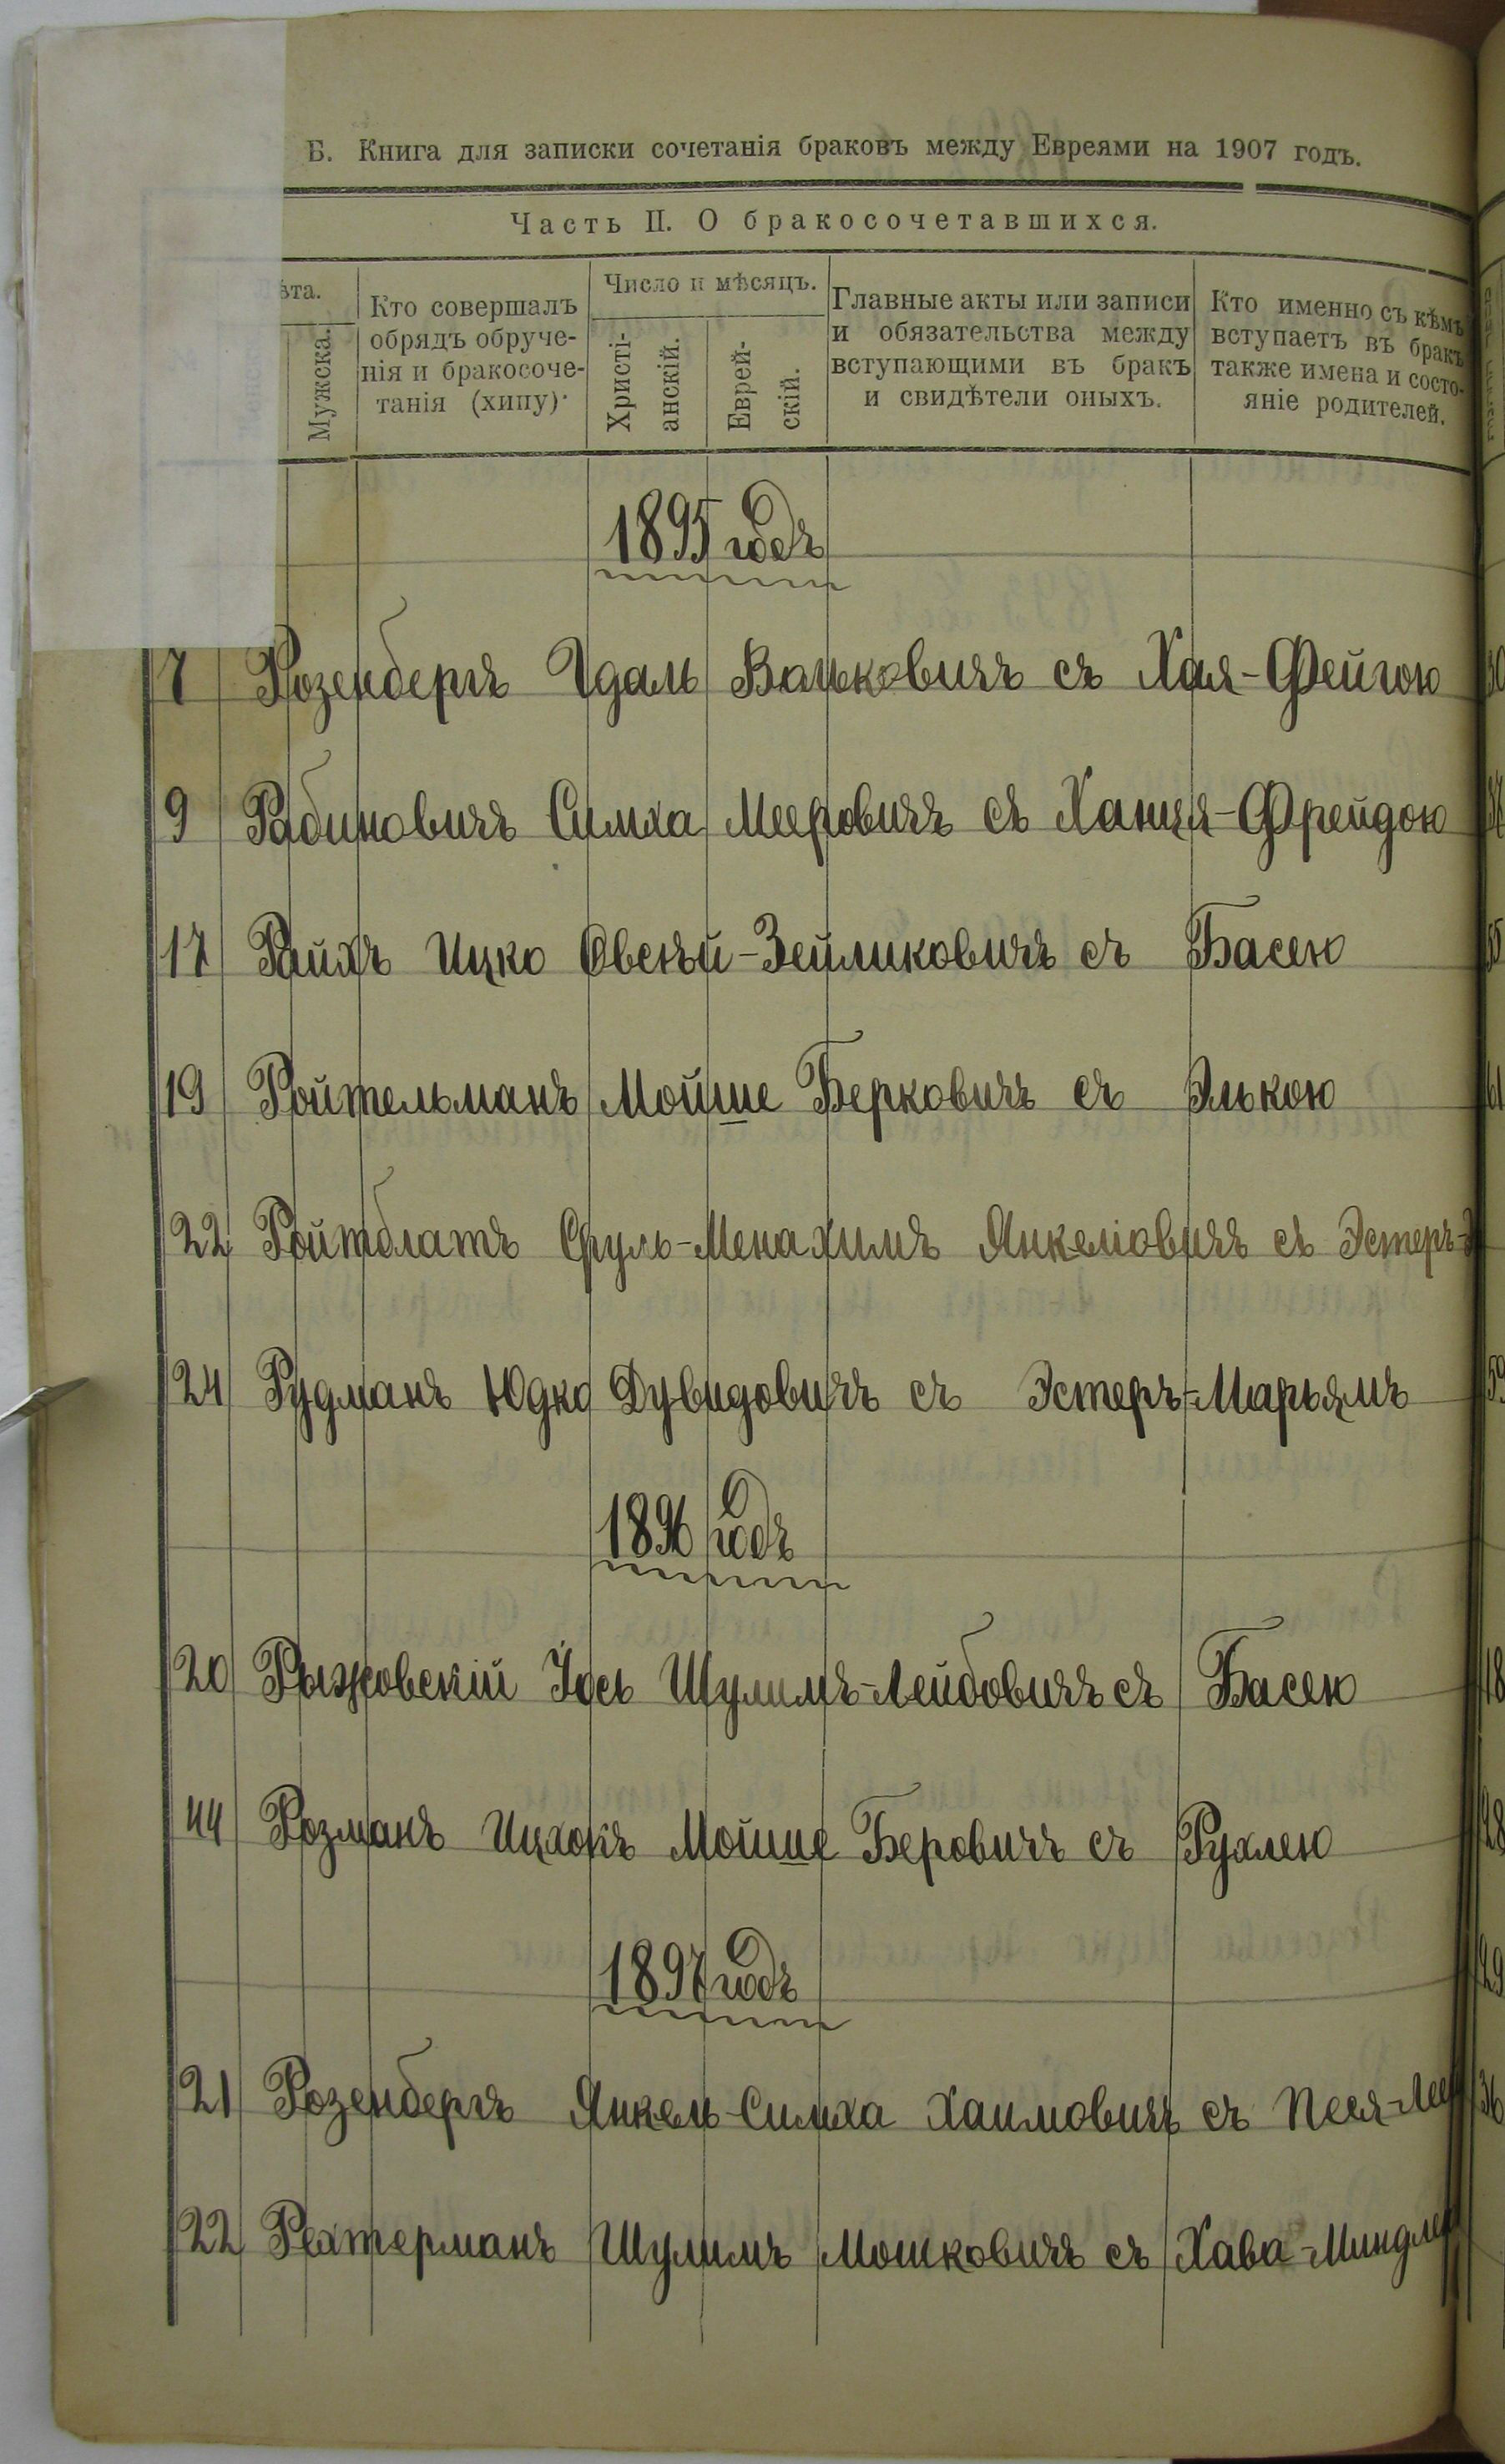 Б. Книга для записки сочетанія браковъ между Евреями на 1907 годъ.
Часть II. О бракосочетавшихся.
ѣта.
Мужска.
Кто совершалъ
обрядъ обруче-
нія и бракосоче-
танія (хипу)
Число и мѣсяцъ.
Христі-
анскій.
Еврей-
скій.
Главные акты или записи
и обязательства между
вступающими въ бракъ
и свидѣтели оныхъ.
Кто именно съ кѣмъ
вступаетъ въ бракъ
также имена и состо-
яніе родителей.
1895 годъ
7 Розенбергъ Гдаль Вольковичъ съ Хая-Фейгою
9 Рабиновичъ Симха Мееровичъ съ Ханця-Фрейдою
17 Райхъ Ицко Овсѣй-Зейликовичъ съ Басею
19 Ройтельманъ Мойше Берковичъ съ Элькою
22 Ройтблатъ Сруль-Менахимъ Янкеліовичъ съ Эстеръ-
24 Рудманъ Юдко Дувидовичъ съ Эстеръ-Марьямъ
1896 годъ
20 Рыжовскій Іось Шулимъ-Лейбовичъ съ Басею
44 Розманъ Ицхокъ Мойше Беровичъ съ Рухлею
1897 годъ
21 Розенбергъ Янкель-Симха Хаимовичъ съ Песя-Лею
22 Рехтерманъ Шулимъ Мошковичъ съ Хава-Миндлею